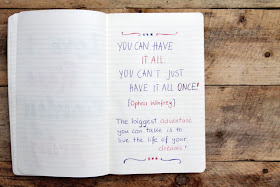 YOU CAN HAVE
IT ALL.
YOU CAN'T JUST
HAVE IT ALL ONCE!
{Ophra Winfrey}
The biggest adventure
you can take is to
live the life of your
dreams!